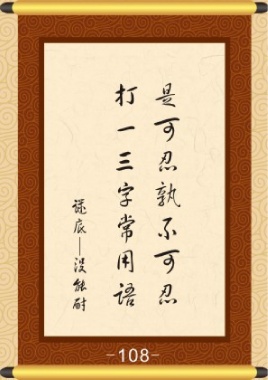 是可忍孰不可忍
打一三字常用语
谜底——没能耐
-108-